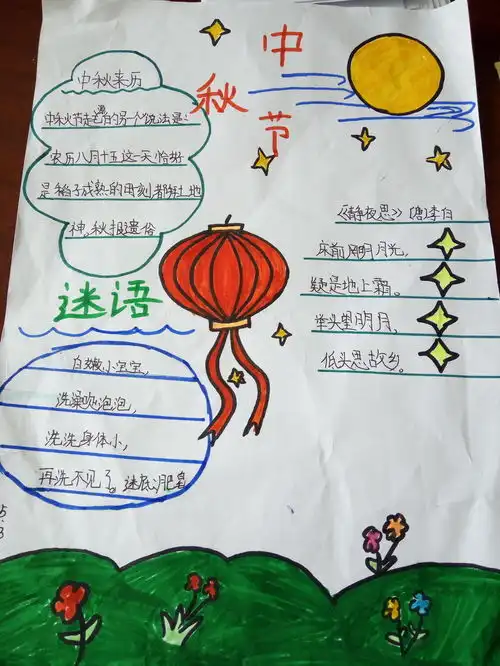 中秋节
中秋来历
中秋节起源的另一个说法是:
农历八月十五这一天恰好
是稻子成熟的时刻,都拜土地
神。秋报遗俗
《静夜思》(唐)李白
床前明月光,
疑是地上霜。
举头望明月,
低头思故乡。
迷语
白嫩小宝宝,
洗澡吹泡泡,
洗洗身体小,
再洗不见了。迷底:肥皂